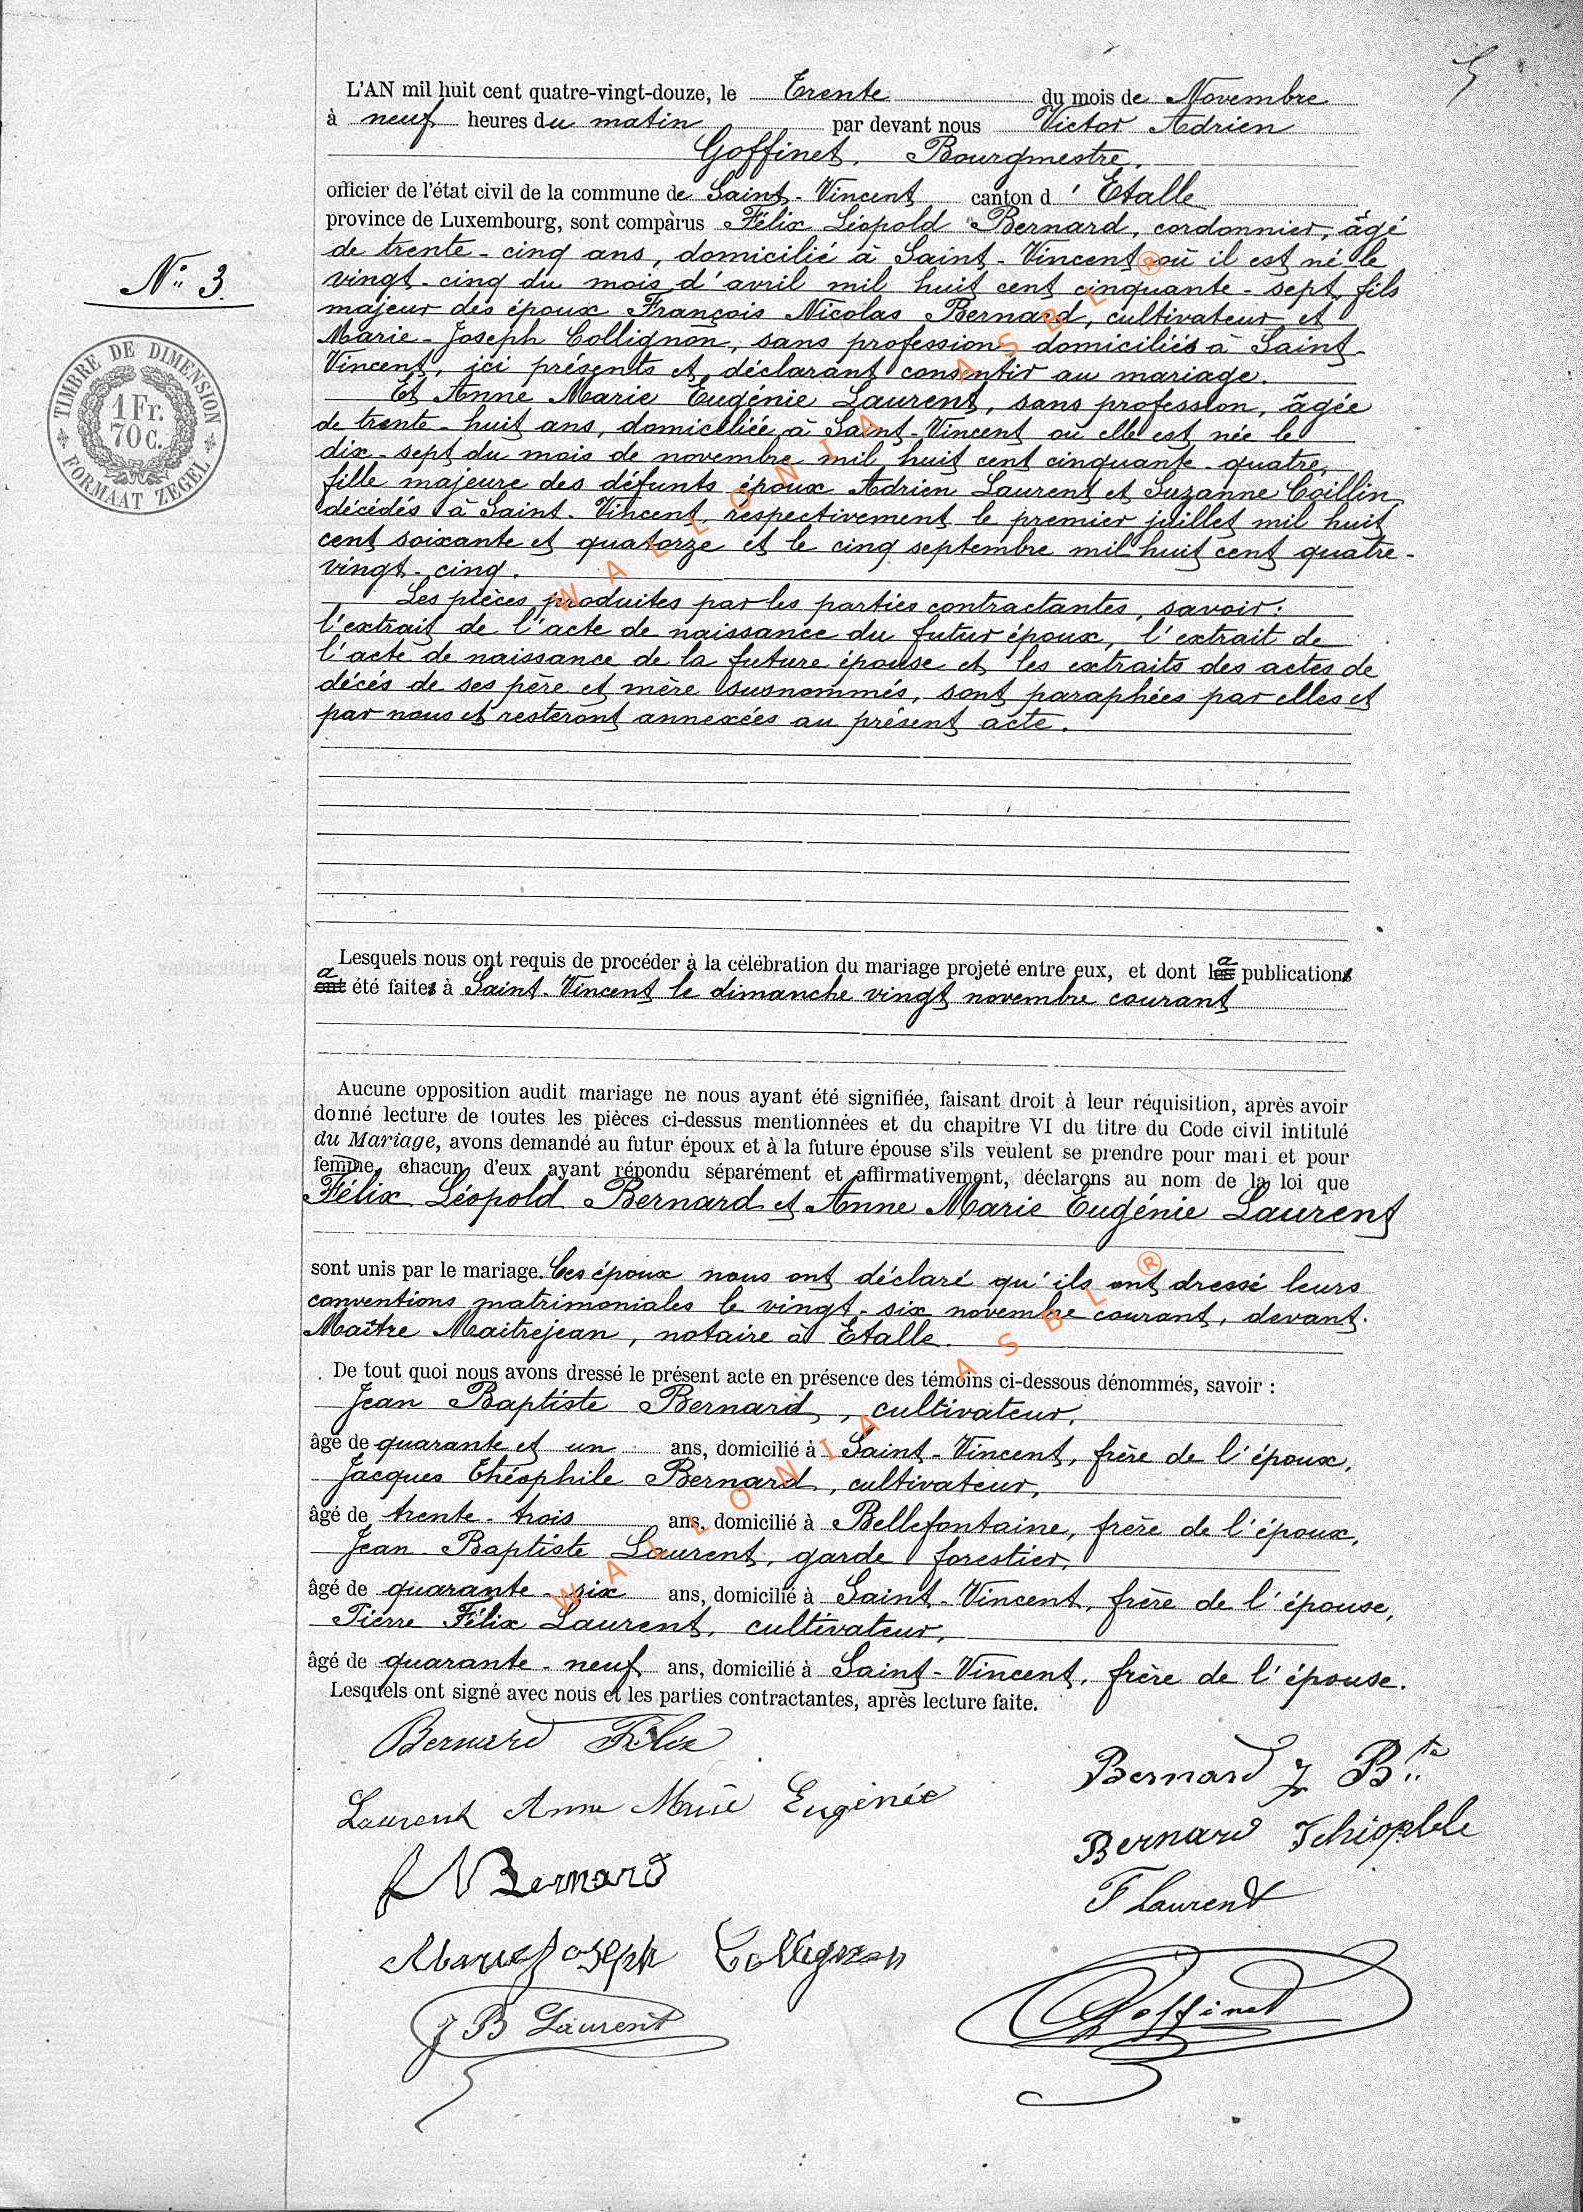 L'AN mil huit cent quatre-vingt-douze, le Trente du mois de Novembre
à neuf heures du matin par devant nous Victor Adrien
Goffinet, Bourgmestre,
officier de l'état civil de la commune de Saint-Vincent canton d'Etalle
province de Luxembourg, sont comparus Félix Léopold Bernard, cordonnier, âgé
de trente-cinq ans, domicilié à Saint-Vincent où il est né le
vingt-cinq du mois d'avril mil huit cent cinquante-sept, fils
majeur des époux François Nicolas Bernard, cultivateur et
Marie-Joseph Collignon, sans profession, domiciliés à Saint-
Vincent, ici présents et déclarant consentir au mariage.
Et Anne Marie Eugénie Laurent, sans profession, âgée
de trente-huit ans, domiciliée à Saint-Vincent où elle est née le
dix-sept du mois de novembre mil huit cent cinquante-quatre,
fille majeure des défunts époux Adrien Laurent et Suzanne Coillin
décédés à Saint-Vincent, respectivement le premier juillet mil huit
cent soixante et quatorze et le cinq septembre mil huit cent quatre-
vingt-cinq.
N° 3.
TIMBRE DE DIMENSION
1 Fr.
70 C.
FORMAAT ZEGEL
Les pièces produites par les parties contractantes, savoir:
l'extrait de l'acte de naissance du futur époux, l'extrait de
l'acte de naissance de la future épouse et les extraits des actes de
décés de ses père et mère susnommés, sont paraphées par elles et
par nous et resteront annexées au présent acte.
Lesquels nous ont requis de procéder à la célébration du mariage projeté entre eux, et dont la publication
a été faite à Saint-Vincent le dimanche vingt novembre courant
Aucune opposition audit mariage ne nous ayant été signifiée, faisant droit à leur réquisition, après avoir
donné lecture de toutes les pièces ci-dessus mentionnées et du chapitre VI du titre du Code civil intitulé
du Mariage, avons demandé au futur époux et à la future épouse s'ils veulent se prendre pour mari et pour
femme, chacun d'eux ayant répondu séparément et affirmativement, déclarons au nom de la loi que
Félix Léopold Bernard et Anne Marie Eugénie Laurent
sont unis par le mariage. Ces époux nous ont déclaré qu'ils ont dressé leurs
conventions matrimoniales le vingt-six novembre courant, devant
Maître Maitrejean, notaire à Etalle.
De tout quoi nous avons dressé le présent acte en présence des témoins ci-dessous dénommés, savoir :
Jean Baptiste Bernard, cultivateur,
âgé de quarante et un ans, domicilié à Saint-Vincent, frère de l'époux,
Jacques Théophile Bernard, cultivateur,
âgé de trente-trois ans, domicilié à Bellefontaine, frère de l'époux,
Jean Baptiste Laurent, garde forestier,
âgé de quarante-six ans, domicilié à Saint-Vincent, frère de l'épouse,
Pierre Félix Laurent, cultivateur,
âgé de quarante-neuf ans, domicilié à Saint-Vincent, frère de l'épouse.
Lesquels ont signé avec nous et les parties contractantes, après lecture faite.
Bernard Félix
Bernard J Bte
Laurent Anne Marie Eugénie
Bernard Théophile
f N Bernard
F Laurent
Marie Joseph Collignon
J B Laurent
Goffinet
WALLONIA ASBL ®
WALLONIA ASBL ®